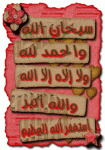 سبحان الله
والحمد لله
ولا إله إلا الله
والله أكبر
استغفر الله العظيم